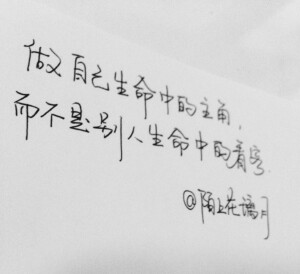 做自己生命中的主角，
而不是别人生命中的看客.
@陌上花谒月